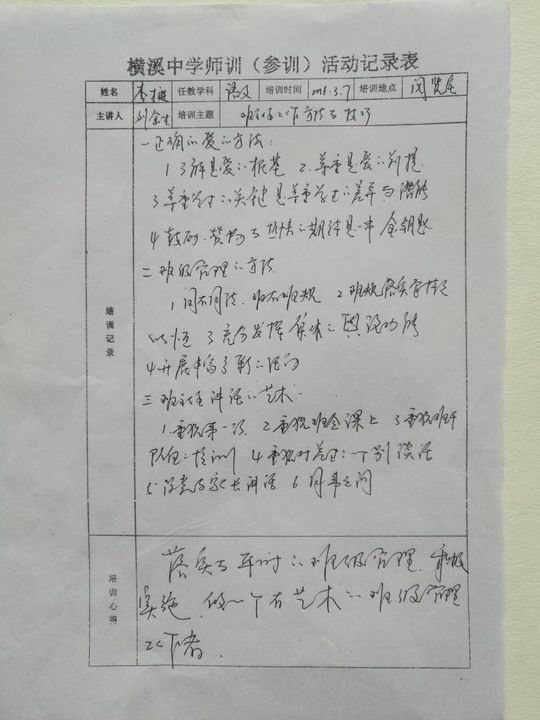 横溪中学师训（参训）活动记录表
姓名 李 任教学科 语文 培训时间 3.7 培训地点 阅览室
主讲人 刘金 培训主题 班主任工作方法与技巧
培训记录
一 正确的爱的方法：
1 了解是爱的根基 2 尊重是爱的前提
3 尊重学生的关键是尊重学生的差异与潜能
4 鼓励、赞扬与热情的期待是一串金钥匙
二 班级管理的方法
1 国有国法，班有班规 2 班规落实要持之
以恒 3 充分发挥集体的舆论功能
4 开展丰富多彩的活动
三 班主任讲话的艺术
1 重视第一次 2 重视班会课上 3 重视班干
队伍的培训 4 重视对学生的个别谈话
5 注意与家长讲话 6
培训心得
落实与研讨的班级管理，积极
实施，做一个有艺术的班级管理
工作者。